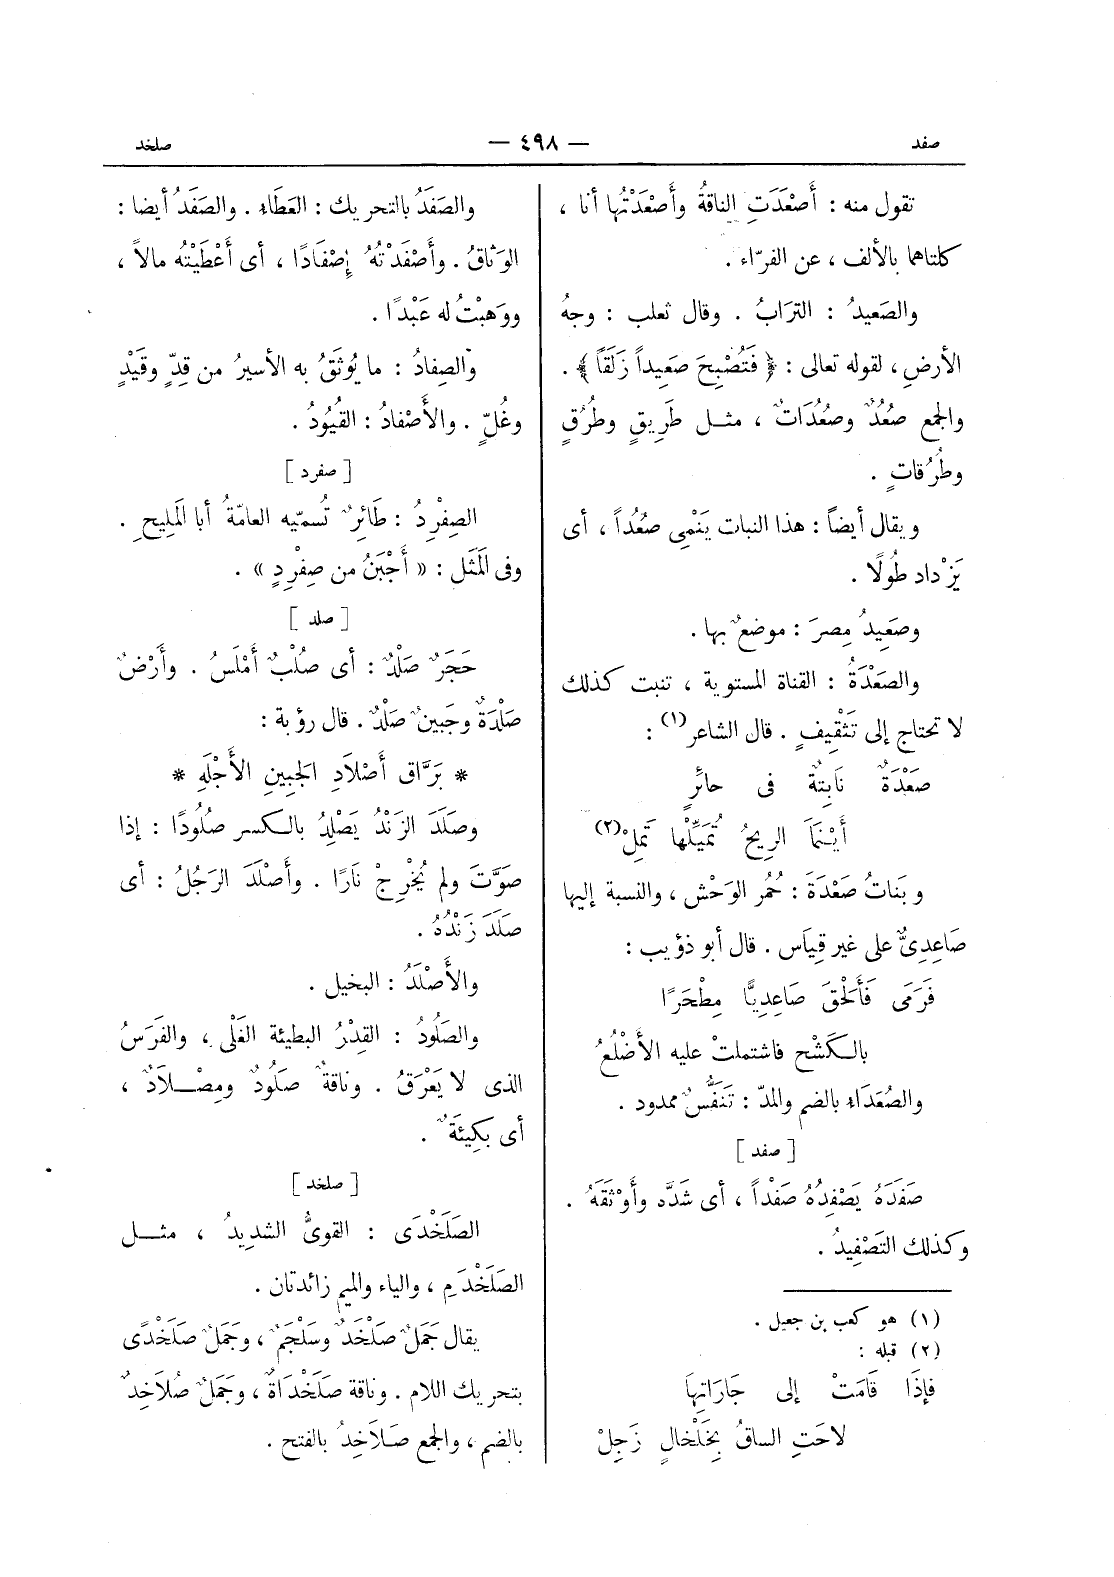 صفد
— ٤٩٨ —
صلخد
تقول منه : أَصْعَدَتِ الناقةُ وأَصْعَدْتُها أنا ،
كلتاهما بالألف ، عن الفرّاء .
والصَعيدُ : الترَابُ . وقال ثعلب : وجهُ
الأرضِ ، لقوله تعالى : ﴿ فَتُصْبِحَ صَعِيداً زَلَقاً ﴾ .
والجمع صُعُدٌ وصُعُدَاتٌ ، مثـل طَرِيقٍ وطُرُقٍ
وطُرُقاتٍ .
ويقال أيضاً : هذا النبات يَنْمِى صُعُداً ، أى
يَزْداد طُولًا .
وصَعِيدُ مِصرَ : موضعٌ بها .
والصَعْدَةُ : القناة المستوية ، تنبت كذلك
لا تحتاج إلى تَثْقِيفٍ . قال الشاعر (١) :
صَعْدَةٌ نَابِتَةٌ فى حائَرٍ
أَيْنَمَا الرِيحُ تُمَيِّلْها تَمِلْ (٢)
وبَنَاتُ صَعْدَةَ : حُمُر الوَحْش ، والنسبة إليها
صَاعِدِىٌّ على غير قِيَاس . قال أبو ذؤيب :
فَرَمَى فَأَلْحَقَ صَاعِدِيًّا مِطْحَرًا
بالـكَشْح فاشتملتْ عليه الأَضْلُعُ
والصُعَدَاء بالضم والمدّ : تَنَفُّسٌ ممدود .
[ صفد ]
صَفَدَهُ يَصْفِدُهُ صَفْداً ، أى شَدَّه وأَوْثَقَهُ .
وكذلك التَصْفِيدُ .
(١) هو كعب بن جعيل .
(٢) قبله :
فإذَا قَامَتْ إلى جَارَاتِهَا
لاحَتِ الساقُ بِخَلْخالٍ زَجِلْ
والصَفَدُ بالتحريك : العَطَاء . والصَفَدُ أيضا :
الوَثاقُ . وأَصْفَدْتُهُ إصْفَادًا ، أى أَعْطَيْتُه مالاً ،
ووَهبْتُ له عَبْدًا .
والصِفادُ : ما يُوثَقُ به الأسيرُ من قِدٍّ وقَيْدٍ
وغُلٍّ . والأَصْفادُ : القُيُودُ .
[ صفرد ]
الصِفْرِدُ : طَائِرٌ تُسمّيه العامّةُ أبا المَلِيحِ .
وفى المَثَل : « أَجْبَنُ من صِفْرِدٍ » .
[ صلد ]
حَجَرٌ صَلْدٌ : أى صُلْبٌ أَمْلَسُ . وأَرْضٌ
صَلْدَةٌ وجَبينٌ صَلْدٌ . قال رؤبة :
* بَرَّاق أَصْلاَدِ الجَبِينِ الأَجْلَهِ *
وصَلَدَ الزَنْدُ يَصْلِدُ بالـكسر صُلُودًا : إذا
صَوَّتَ ولم يُخْرِجْ نَارًا . وأَصْلَدَ الرَجُلُ : أى
صَلَدَ زَنْدُهُ .
والأَصْلَدُ : البخيل .
والصَلُودُ : القِدْرُ البطيئة الغَلْى ، والفَرَسُ
الذى لا يَعْرَقُ . وناقةٌ صَلُودٌ ومِصْـلاَدٌ ،
أى بَكِيئَةٌ .
[ صلخد ]
الصَلَخْدَى : القوىُّ الشديدُ ، مثـل
الصَلَخْدَمِ ، والياء والميم زائدتان .
يقال جَمَلٌ صَلْخَدٌ وسَلْجَمٌ ، وجَمَلٌ صَلَخْدًى
بتحريك اللام . وناقة صَلَخْدَاةٌ ، وجَمَلٌ صُلاَخِدٌ
بالضم ، والجمع صَلاَخِدُ بالفتح .